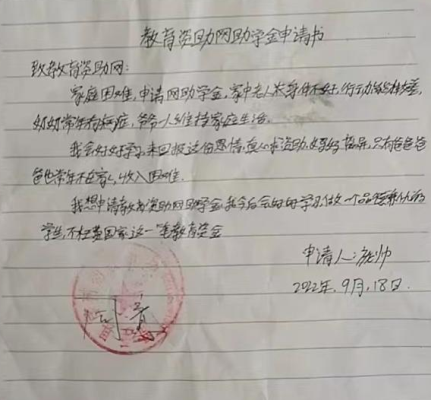 教育资助网助学金申请书
致教育资助网:
家庭困难,申请网助学金,家中老人身体不好,行动能力较差,
奶奶常年有病症,爷爷一人维持家庭生活。
我会好好学习来回报这份恩情,只有爸爸爸
爸也常年不在家,收入困难。
我想申请教育资助网助学金我今后会好好学习做一个品
学生,不枉费国家这一笔教育资金
申请人:庞帅
2022年.9月.18日.